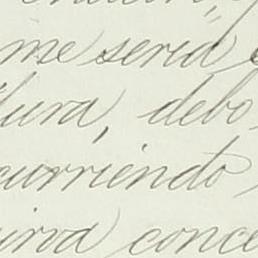 me seria
lura, debo
curriendo
irva conce